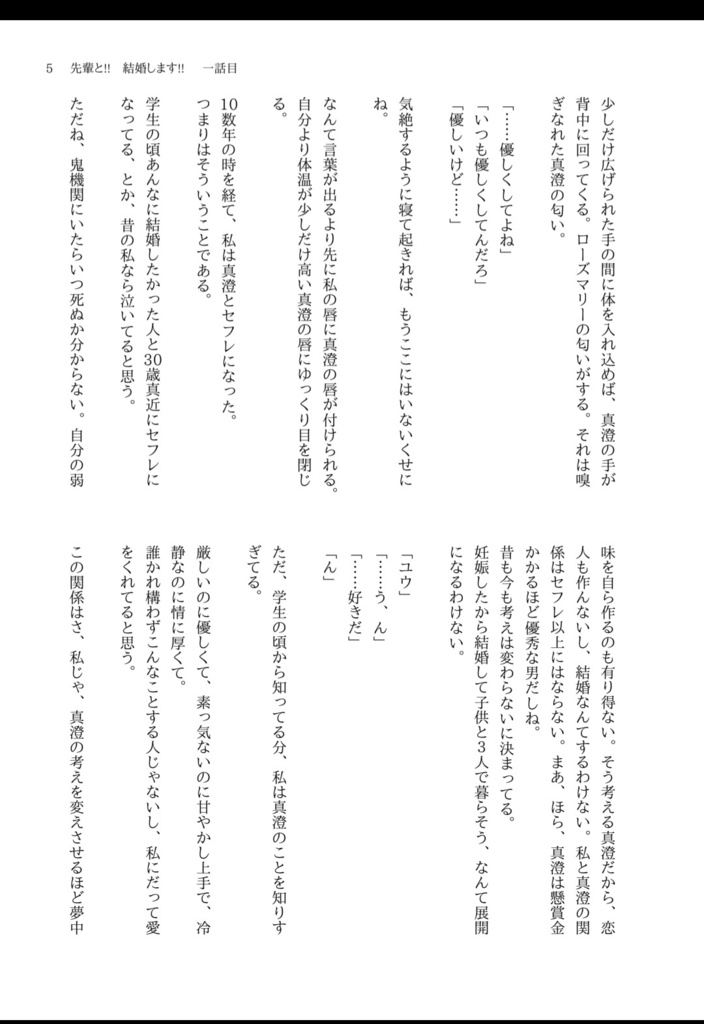 5 先輩と!! 結婚します!! 一話目
少しだけ広げられた手の間に体を入れ込めば、真澄の手が
背中に回ってくる。ローズマリーの匂いがする。それは嗅
ぎなれた真澄の匂い。
「……優しくしてよね」
「いつも優しくしてんだろ」
「優しいけど……」
気絶するように寝て起きれば、もうここにはいないくせに
ね。
なんて言葉が出るより先に私の唇に真澄の唇が付けられる。
自分より体温が少しだけ高い真澄の唇にゆっくり目を閉じ
る。
10数年の時を経て、私は真澄とセフレになった。
つまりはそういうことである。
学生の頃あんなに結婚したかった人と30歳真近にセフレに
なってる、とか、昔の私なら泣いてると思う。
ただね、鬼機関にいたらいつ死ぬか分からない。自分の弱
味を自ら作るのも有り得ない。そう考える真澄だから、恋
人も作んないし、結婚なんてするわけない。私と真澄の関
係はセフレ以上にはならない。まあ、ほら、真澄は懸賞金
かかるほど優秀な男だしね。
昔も今も考えは変わらないに決まってる。
妊娠したから結婚して子供と3人で暮らそう、なんて展開
になるわけない。
「ユウ」
「……う、ん」
「……好きだ」
「ん」
ただ、学生の頃から知ってる分、私は真澄のことを知りす
ぎてる。
厳しいのに優しくて、素っ気ないのに甘やかし上手で、冷
静なのに情に厚くて。
誰かれ構わずこんなことする人じゃないし、私にだって愛
をくれてると思う。
この関係はさ、私じゃ、真澄の考えを変えさせるほど夢中